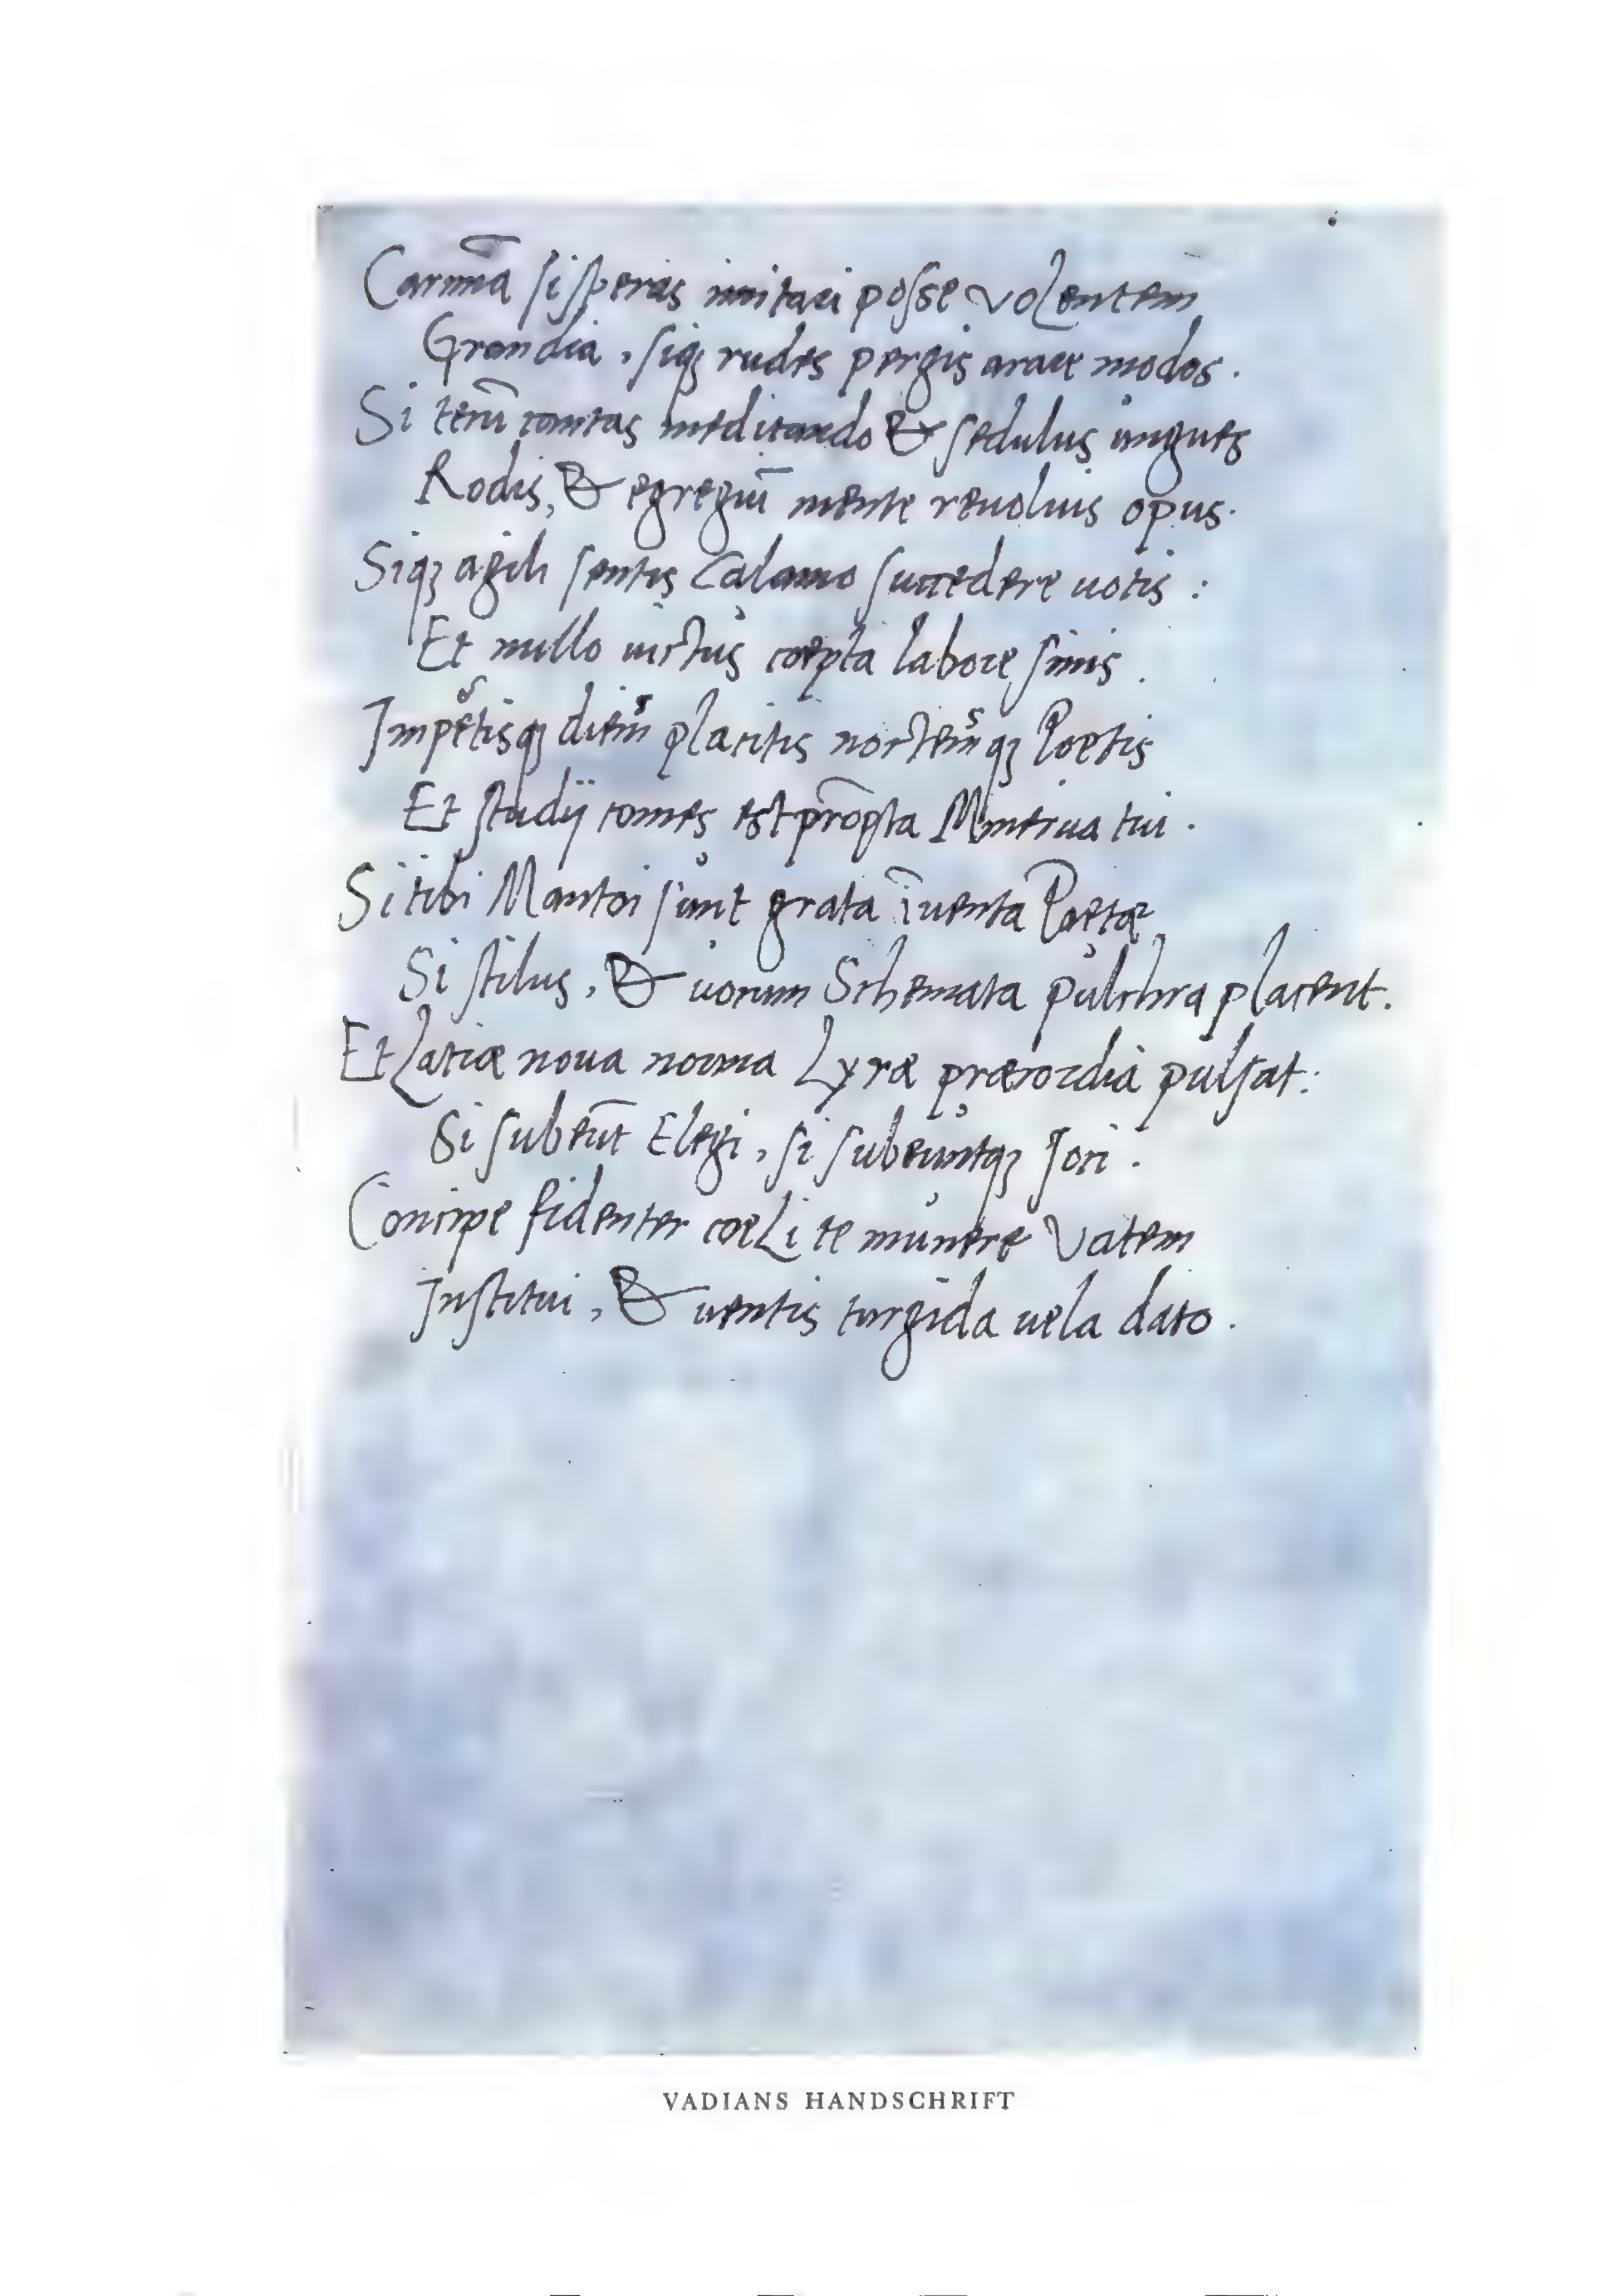 Carmīa si speras imitari posse volentem
Grandia, siqꝫ rudes pergis arare modos.
Si tecū cantas meditando & sedulus ungues
Rodis, & egregiū mente reuoluis opus.
Siqꝫ agili sentis Calamo succedere uotis:
Et nullo uirtus coepta labore sinis.
Impetisqꝫ diem placitis noctemqꝫ Poetis
Et studij comes est prōpta Minerua tui.
Si tibi Mantoi sunt grata īuenta Poetæ
Si stilus, & uocum Schemata pulchra placent.
Et Latiæ noua norma Lyræ præcordia pulsat:
Si subeūt Elegi, si subeuntqꝫ Ioci.
Concipe fidenter coeli te munere Vatem
Institui, & uentis turgida uela dato.
VADIANS HANDSCHRIFT